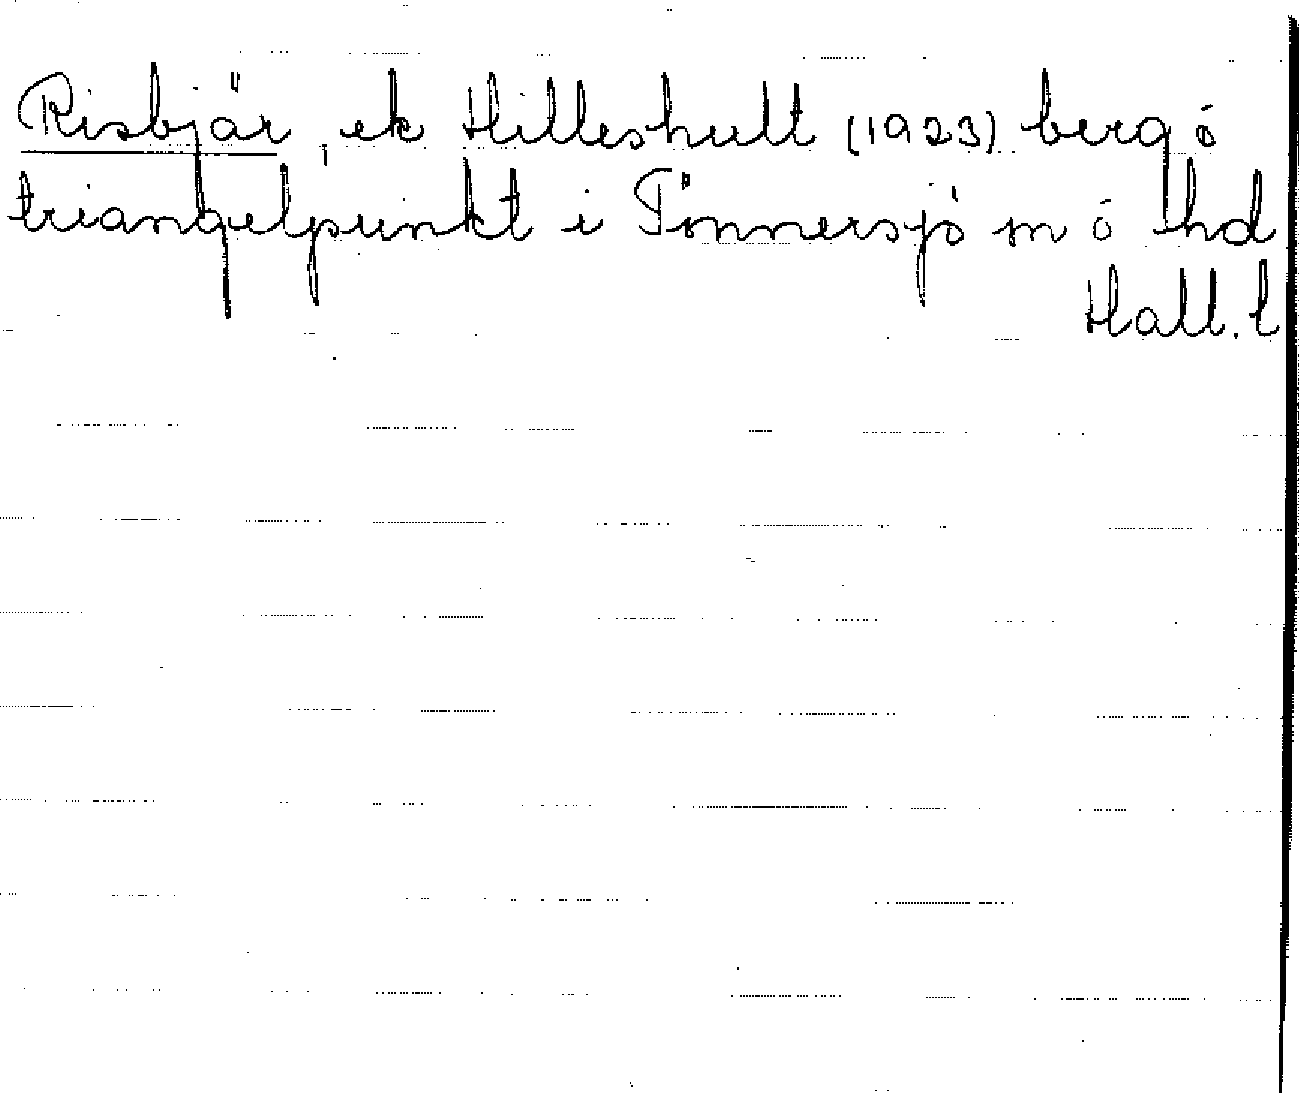 Risbjär, ek Hilleshult (1923) berg ó
triangelpunkt i Tönnersjö m ó lhd
Hall. l